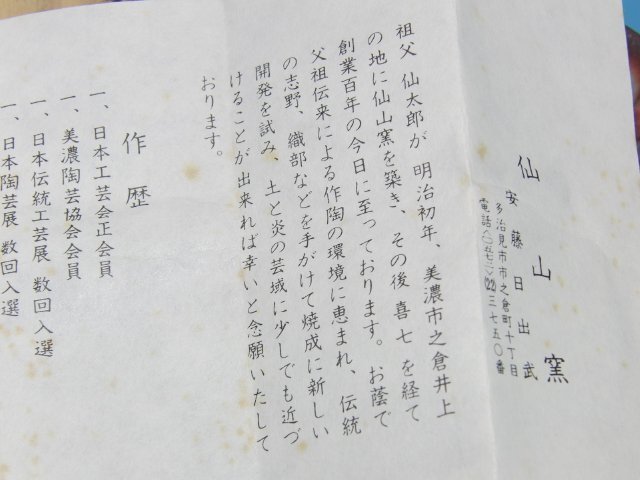 仙山窯
安藤日出武
多治見市市之倉町十丁目
電話(〇五七二)(22)三七五〇番
祖父 仙太郎が 明治初年、美濃市之倉井上
の地に仙山窯を築き、その後 喜七 を経て
創業百年の今日に至っております。お蔭で
父祖伝来による作陶の環境に恵まれ、伝統
の志野、織部などを手がけて焼成に新しい
開発を試み、土と炎の芸域に少しでも近づ
けることが出来れば幸いと念願いたして
おります。
作歴
一、日本工芸会正会員
一、美濃陶芸協会会員
一、日本伝統工芸展 数回入選
一、日本陶芸展 数回入選